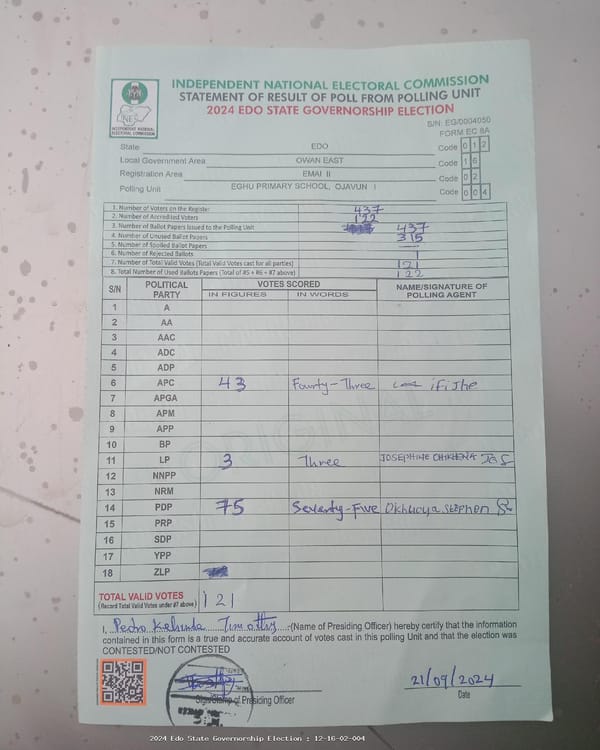 INDEPENDENT NATIONAL ELECTORAL COMMISSION
STATEMENT OF RESULT OF POLL FROM POLLING UNIT
2024 EDO STATE GOVERNORSHIP ELECTION
S/N: EG/0004050
FORM EC 8A
INEC
INDEPENDENT NATIONAL ELECTORAL COMMISSION
State EDO Code 0 1 2
Local Government Area OWAN EAST Code 1 6
Registration Area EMAI II Code 0 2
Polling Unit EGHU PRIMARY SCHOOL, OJAVUN I Code 0 0 4
1. Number of Voters on the Register 437
2. Number of Accredited Voters 122
3. Number of Ballot Papers Issued to the Polling Unit 437
4. Number of Unused Ballot Papers 315
5. Number of Spoiled Ballot Papers —
6. Number of Rejected Ballots 1
7. Number of Total Valid Votes (Total Valid Votes cast for all parties) 121
8. Total Number of Used Ballots Papers (Total of #5 + #6 + #7 above) 122
S/N POLITICAL PARTY VOTES SCORED NAME/SIGNATURE OF POLLING AGENT
IN FIGURES IN WORDS
1 A
2 AA
3 AAC
4 ADC
5 ADP
6 APC 43 Fourty-Three
7 APGA
8 APM
9 APP
10 BP
11 LP 3 Three JOSEPHINE
12 NNPP
13 NRM
14 PDP 75 Seventy-Five Stephen
15 PRP
16 SDP
17 YPP
18 ZLP
TOTAL VALID VOTES 121
(Record Total Valid Votes under #7 above)
I, Pedro Kehinde Timothy (Name of Presiding Officer) hereby certify that the information
contained in this form is a true and accurate account of votes cast in this polling Unit and that the election was
CONTESTED/NOT CONTESTED
21/09/2024
Sign/Stamp of Presiding Officer Date
2024 Edo State Governorship Election : 12-16-02-004